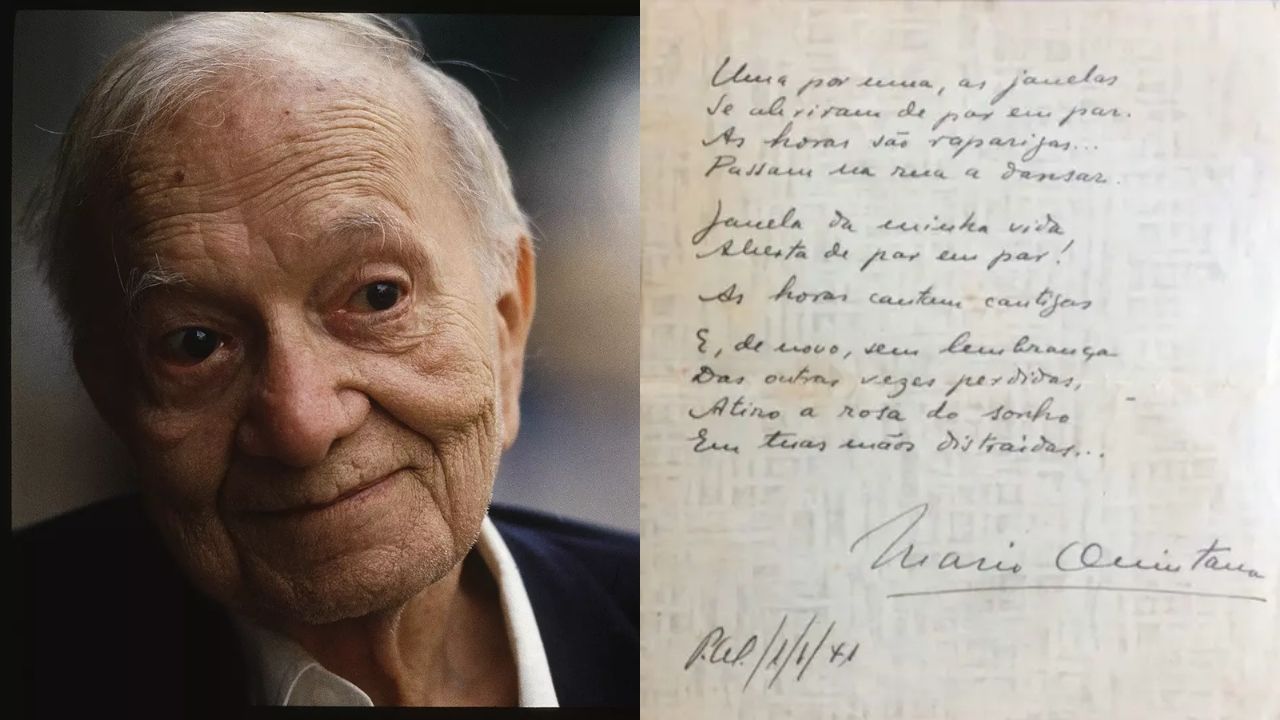 Uma por uma, as janelas
Se abriram de par em par.
As horas são raparigas...
Passam na rua a dansar.
Janela da minha vida
Aberta de par em par!
As horas cantam cantigas
E, de novo, sem lembrança
Das outras vezes perdidas,
Atiro a rosa do sonho
Em tuas mãos distraidas...
Mario Quintana
/1/6/41